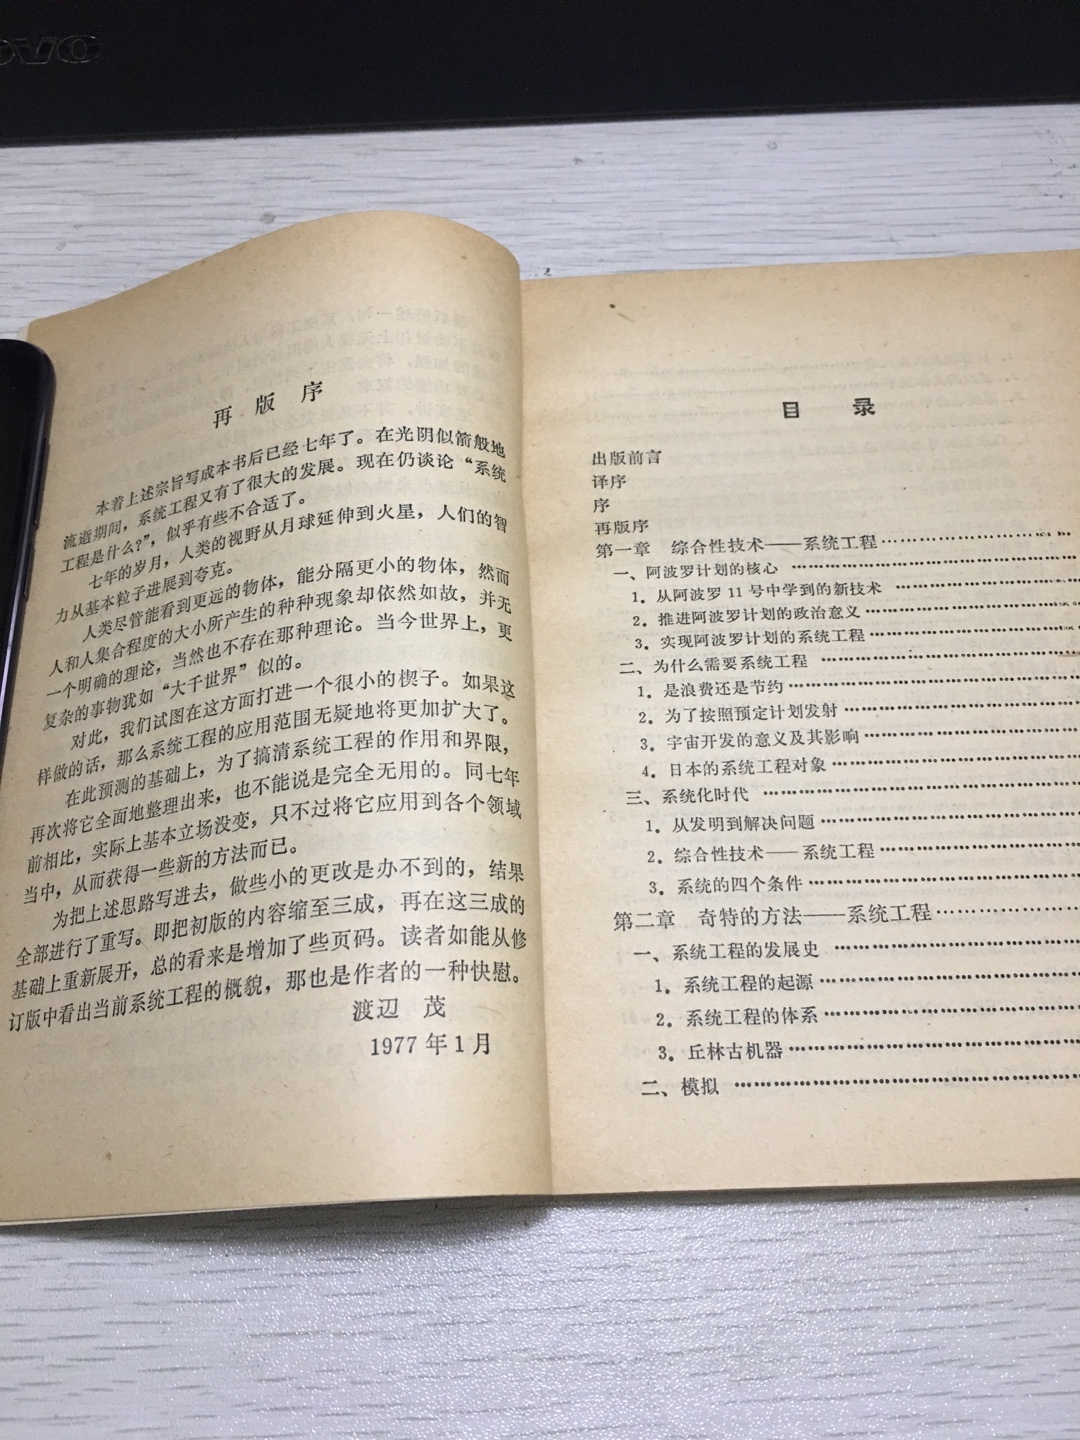 再版序
本着上述宗旨写成本书后已经七年了。在光阴似箭般地
流逝期间，系统工程又有了很大的发展。现在仍谈论“系统
工程是什么？”，似乎有些不合适了。
七年的岁月，人类的视野从月球延伸到火星，人们的智
力从基本粒子进展到夸克。
人类尽管能看到更远的物体，能分隔更小的物体，然而
人和人集合程度的大小所产生的种种现象却依然如故，并无
一个明确的理论，当然也不存在那种理论。当今世界上，更
复杂的事物犹如“大千世界”似的。
对此，我们试图在这方面打进一个很小的楔子。如果这
样做的话，那么系统工程的应用范围无疑地将更加扩大了。
在此预测的基础上，为了搞清系统工程的作用和界限，
再次将它全面地整理出来，也不能说是完全无用的。同七年
前相比，实际上基本立场没变，只不过将它应用到各个领域
当中，从而获得一些新的方法而已。
为把上述思路写进去，做些小的更改是办不到的，结果
全部进行了重写。即把初版的内容缩至三成，再在这三成的
基础上重新展开，总的看来是增加了些页码。读者如能从修
订版中看出当前系统工程的概貌，那也是作者的一种快慰。
渡辺 茂
1977年1月
目录
出版前言
译序
序
再版序
第一章 综合性技术——系统工程
一、阿波罗计划的核心
1. 从阿波罗11号中学到的新技术
2. 推进阿波罗计划的政治意义
3. 实现阿波罗计划的系统工程
二、为什么需要系统工程
1. 是浪费还是节约
2. 为了按照预定计划发射
3. 宇宙开发的意义及其影响
4. 日本的系统工程对象
三、系统化时代
1. 从发明到解决问题
2. 综合性技术——系统工程
3. 系统的四个条件
第二章 奇特的方法——系统工程
一、系统工程的发展史
1. 系统工程的起源
2. 系统工程的体系
3. 丘林古机器
二、模拟